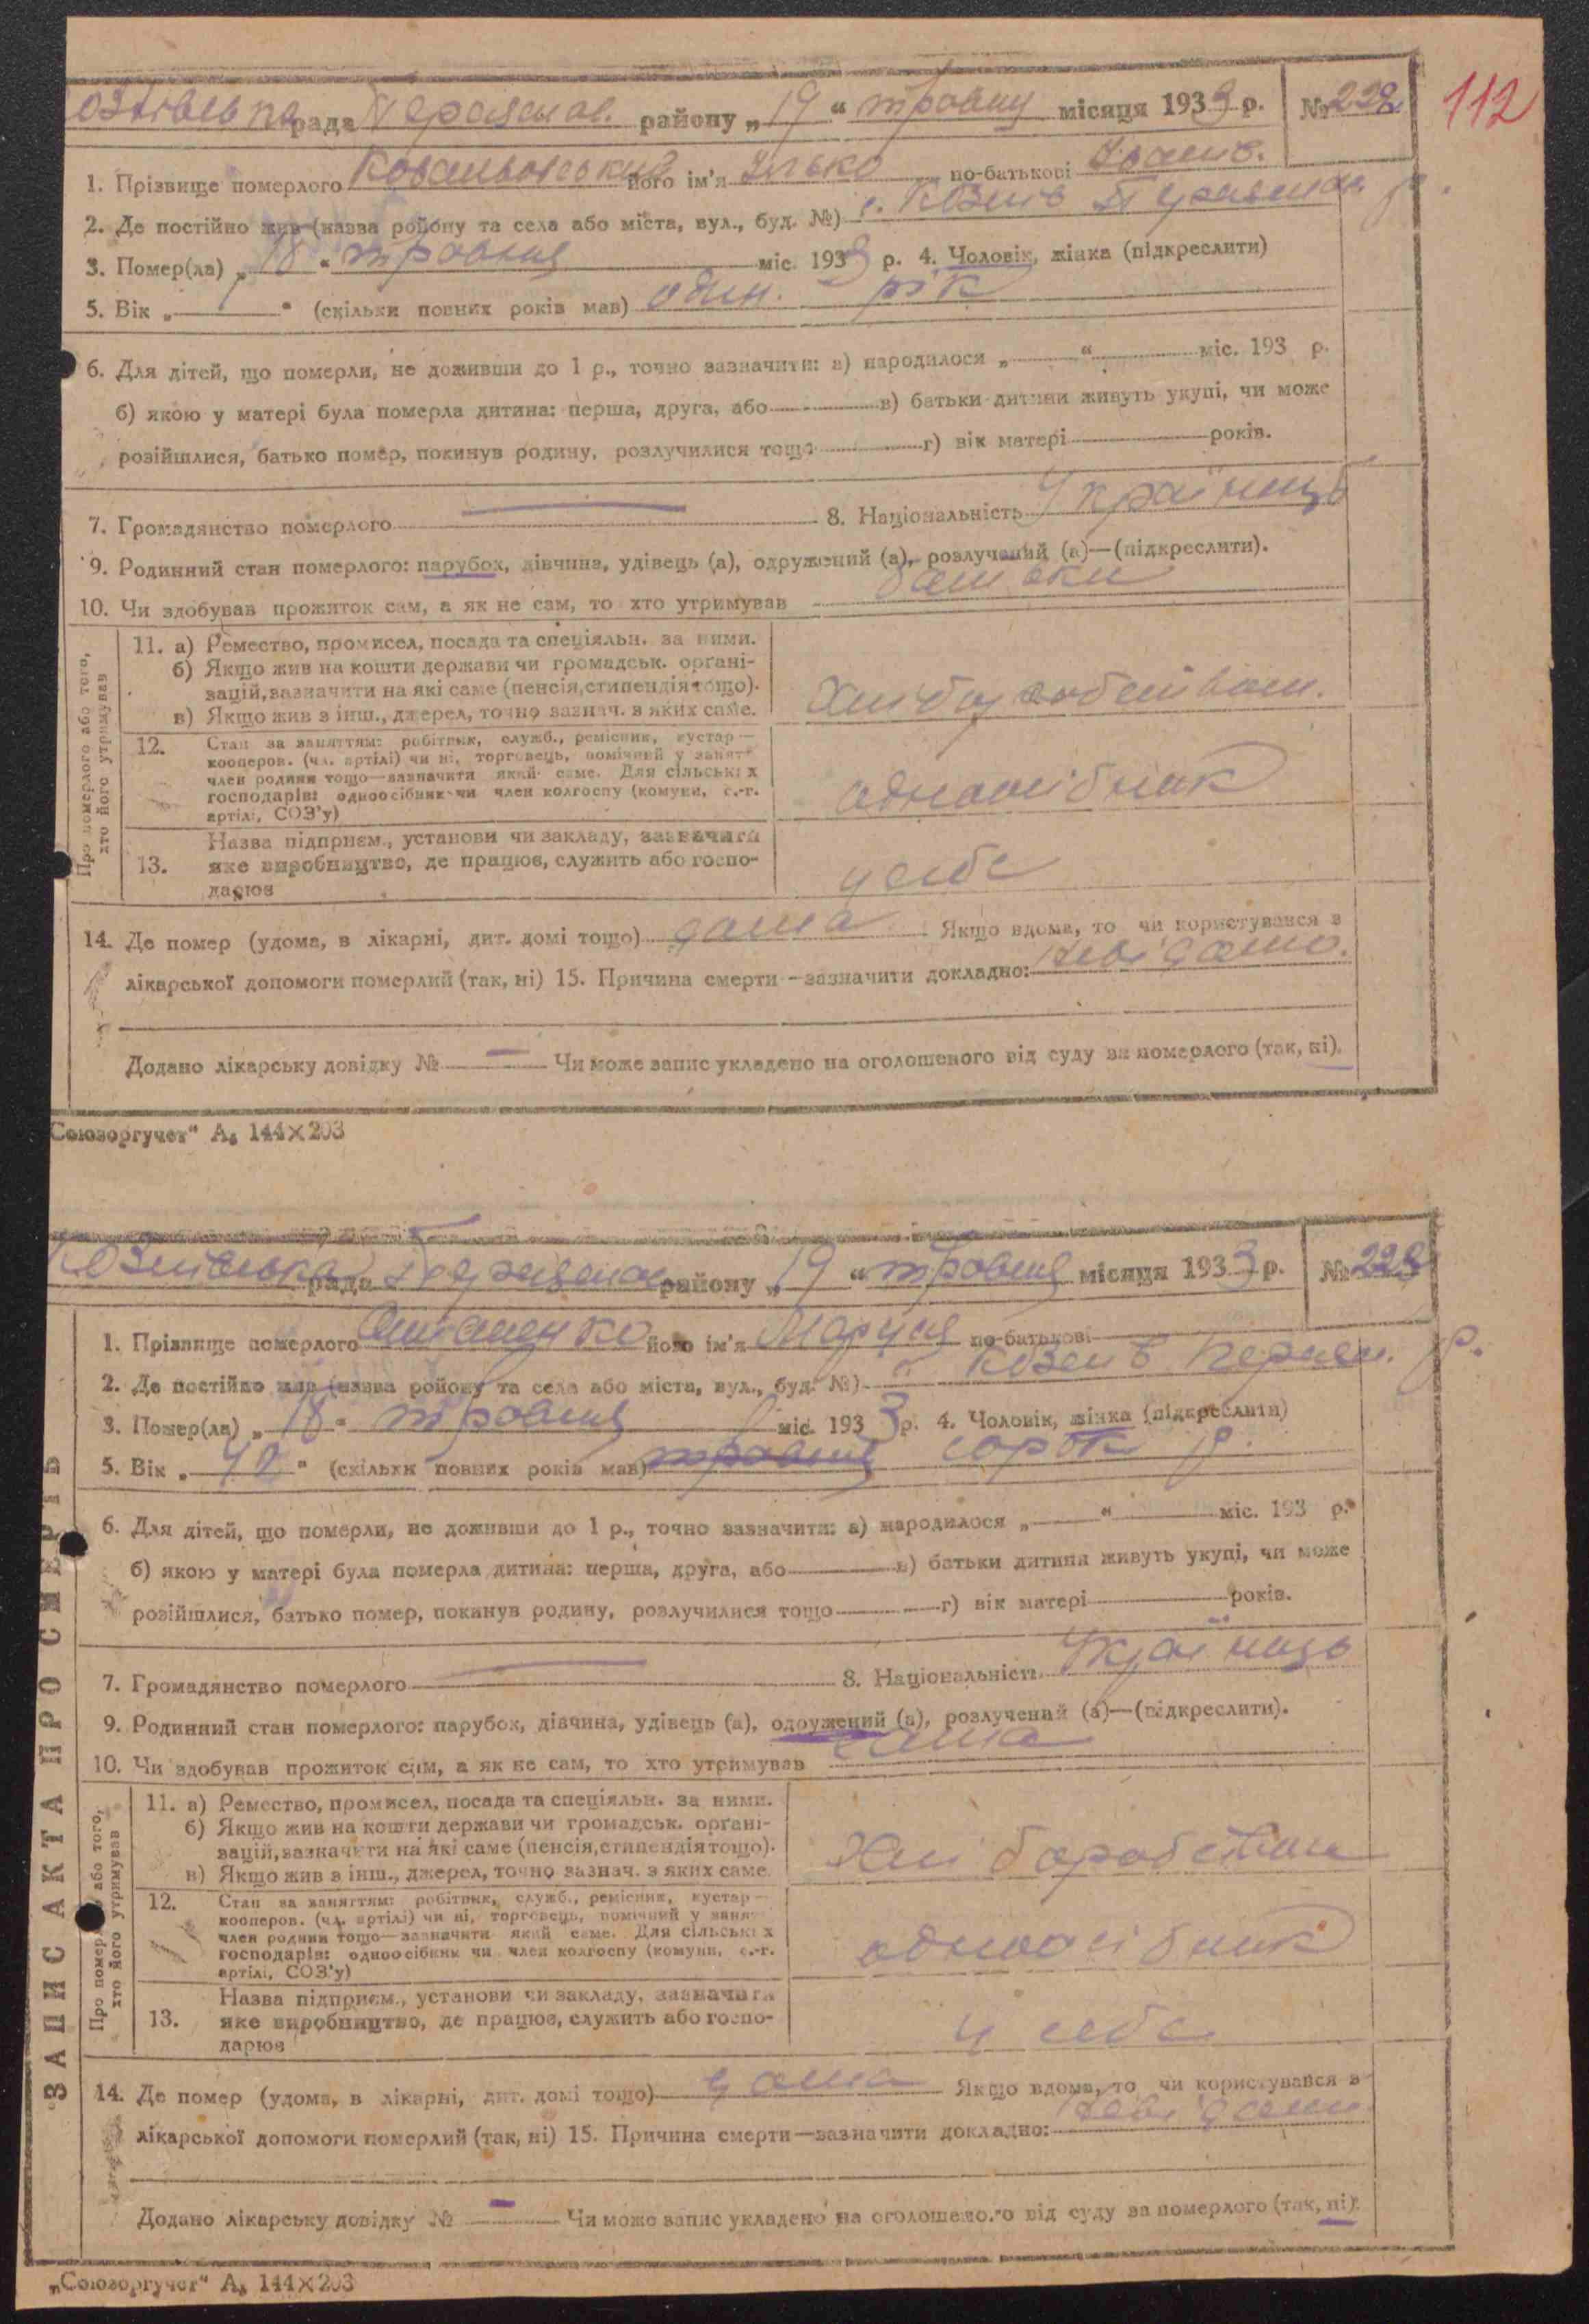 рада Переяслав. району „19“ травня місяця 1933 р. № 228
112
1. Прізвище померлого його ім'я Ілько по-батькові Іванов.
2. Де постійно жив (назва району та села або міста, вул., буд. №) с. Козлів Переяслав. р.
3. Помер(ла) „18“ травня міс. 1933 р. 4. Чоловік, жінка (підкреслити)
5. Вік „1“ (скільки повних років мав) один рік
6. Для дітей, що померли, не доживши до 1 р., точно зазначити: а) народилося „ “ міс. 193 р.
б) якою у матері була померла дитина: перша, друга, або в) батьки дитини живуть укупі, чи може
розійшлися, батько помер, покинув родину, розлучилися тощо г) вік матері років.
7. Громадянство померлого 8. Національність Українець
9. Родинний стан померлого: парубок, дівчина, удівець (а), одружений (а), розлучений (а)—(підкреслити).
10. Чи здобував прожиток сам, а як не сам, то хто утримував батьки
Про померлого або того, хто його утримував
11. а) Ремество, промисел, посада та спеціяльн. за ними.
б) Якщо жив на кошти держави чи громадськ. органі-
зацій, зазначити на які саме (пенсія, стипендія тощо).
в) Якщо жив з інш., джерел, точно зазнач. з яких саме.
12. Стан за заняттям: робітник, служб., ремісник, кустар—
кооперов. (чл. артілі) чи ні, торговець, помічний у занят.
член родини тощо—зазначити який саме. Для сільських
господарів: одноосібник чи член колгоспу (комуни, с.-г.
артілі, СОЗ'у)
одноосібник
13. Назва підприєм., установи чи закладу, зазначити
яке виробництво, де працює, служить або госпо-
дарює
у себе
14. Де помер (удома, в лікарні, дит. домі тощо) дома Якщо вдома, то чи користувався з
лікарської допомоги померлий (так, ні) 15. Причина смерти—зазначити докладно: невідомо.
Додано лікарську довідку № Чи може запис укладено на оголошеного від суду за померлого (так, ні).
Союзоргучет“ А₅ 144×203
Козлівська рада району „19“ травня місяця 1933 р. № 229
1. Прізвище померлого його ім'я Маруся по-батькові
2. Де постійно жив (назва району та села або міста, вул., буд. №) с. Козлів Переяс. р.
3. Помер(ла) „18“ травня міс. 1933 р. 4. Чоловік, жінка (підкреслити)
5. Вік „40“ (скільки повних років мав) травня сорок р.
6. Для дітей, що померли, не доживши до 1 р., точно зазначити: а) народилося „ “ міс. 193 р.
б) якою у матері була померла дитина: перша, друга, або в) батьки дитини живуть укупі, чи може
розійшлися, батько помер, покинув родину, розлучилися тощо г) вік матері років.
7. Громадянство померлого 8. Національність Українець
9. Родинний стан померлого: парубок, дівчина, удівець (а), одружений (а), розлучений (а)—(підкреслити).
10. Чи здобував прожиток сам, а як не сам, то хто утримував сама
Про померлого або того, хто його утримував
11. а) Ремество, промисел, посада та спеціяльн. за ними.
б) Якщо жив на кошти держави чи громадськ. органі-
зацій, зазначити на які саме (пенсія, стипендія тощо).
в) Якщо жив з інш., джерел, точно зазнач. з яких саме.
12. Стан за заняттям: робітник, служб., ремісник, кустар—
кооперов. (чл. артілі) чи ні, торговець, помічний у занят.
член родини тощо—зазначити який саме. Для сільських
господарів: одноосібник чи член колгоспу (комуни, с.-г.
артілі, СОЗ'у)
одноосібник
13. Назва підприєм., установи чи закладу, зазначити
яке виробництво, де працює, служить або госпо-
дарює
у себе
14. Де помер (удома, в лікарні, дит. домі тощо) дома Якщо вдома, то чи користувався з
лікарської допомоги померлий (так, ні) 15. Причина смерти—зазначити докладно: невідомо.
Додано лікарську довідку № Чи може запис укладено на оголошеного від суду за померлого (так, ні).
„Союзоргучет“ А₅ 144×203
ЗАПИС АКТА ПРО СМЕРТЬ